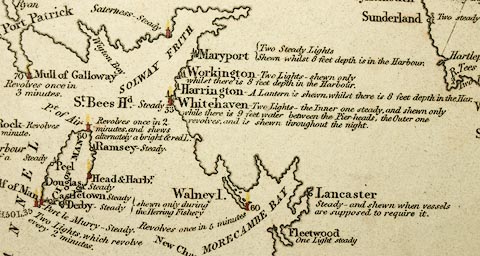 Ryan
Port Patrick
Saterness-Steady
Wigton Bay
SOLWAY FRITH
Mull of Galloway
Revolves once in
3 minutes.
Maryport
Two Steady Lights
Shewn whilst 8 feet depth is in the Harbour.
Workington
Two Lights - shewn only
whilst there is 8 feet depth in the Harbour.
Harrington
A Lantern is shewn, whilst there is 8 feet depth in the Har.
St. Bees Hd.
Steady
Whitehaven
Two Lights - the Inner one steady, and shewn only
while there is 9 feet water between the Pier heads, the Outer one
revolves, and is shewn throughout the night.
Sunderland
Two steady
Hartlep
R. Tees
Pt. of Air
Rock-Revolves
minute.
Revolves once in 2
minutes, and shews
alternately a bright & red L.
Ramsey-Steady
MAN
Steady
Peel
Douglas
Head & Harbr.
Steady
Castletown
Steady
Derby-Steady
shewn only during
the Herring Fishery
Port le Murry-Steady.
Two Lights, which revolve
every 2 minutes.
Walney I.
60
Revolves once in 5 minutes
MORECAMBE BAY
Lancaster
Steady - and shewn when vessels
are supposed to require it.
Fleetwood
One Light steady
New Ch